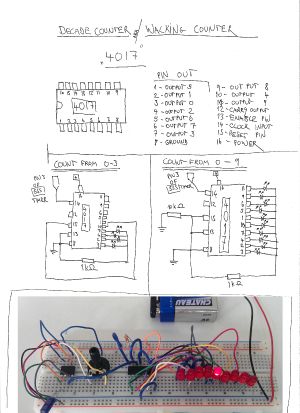 DECADE COUNTER / WALKING COUNTER
4017
PIN OUT
4017
1 - OUTPUT 5
2 - OUTPUT 1
3 - OUTPUT 0
4 - OUTPUT 2
5 - OUTPUT 6
6 - OUTPUT 7
7 - OUTPUT 3
8 - GROUND
9 - OUTPUT 8
10 - OUTPUT 4
11 - OUTPUT 9
12 - CARRY OUTPUT
13 - ENABLE PIN
14 - CLOCK INPUT
15 - RESET PIN
16 - POWER
COUNT FROM 0-3
PIN 3
OF
TIMER
4017
1KΩ
COUNT FROM 0 - 9
PIN 3
OF
10KΩ
4017
1KΩ
CHATEAU